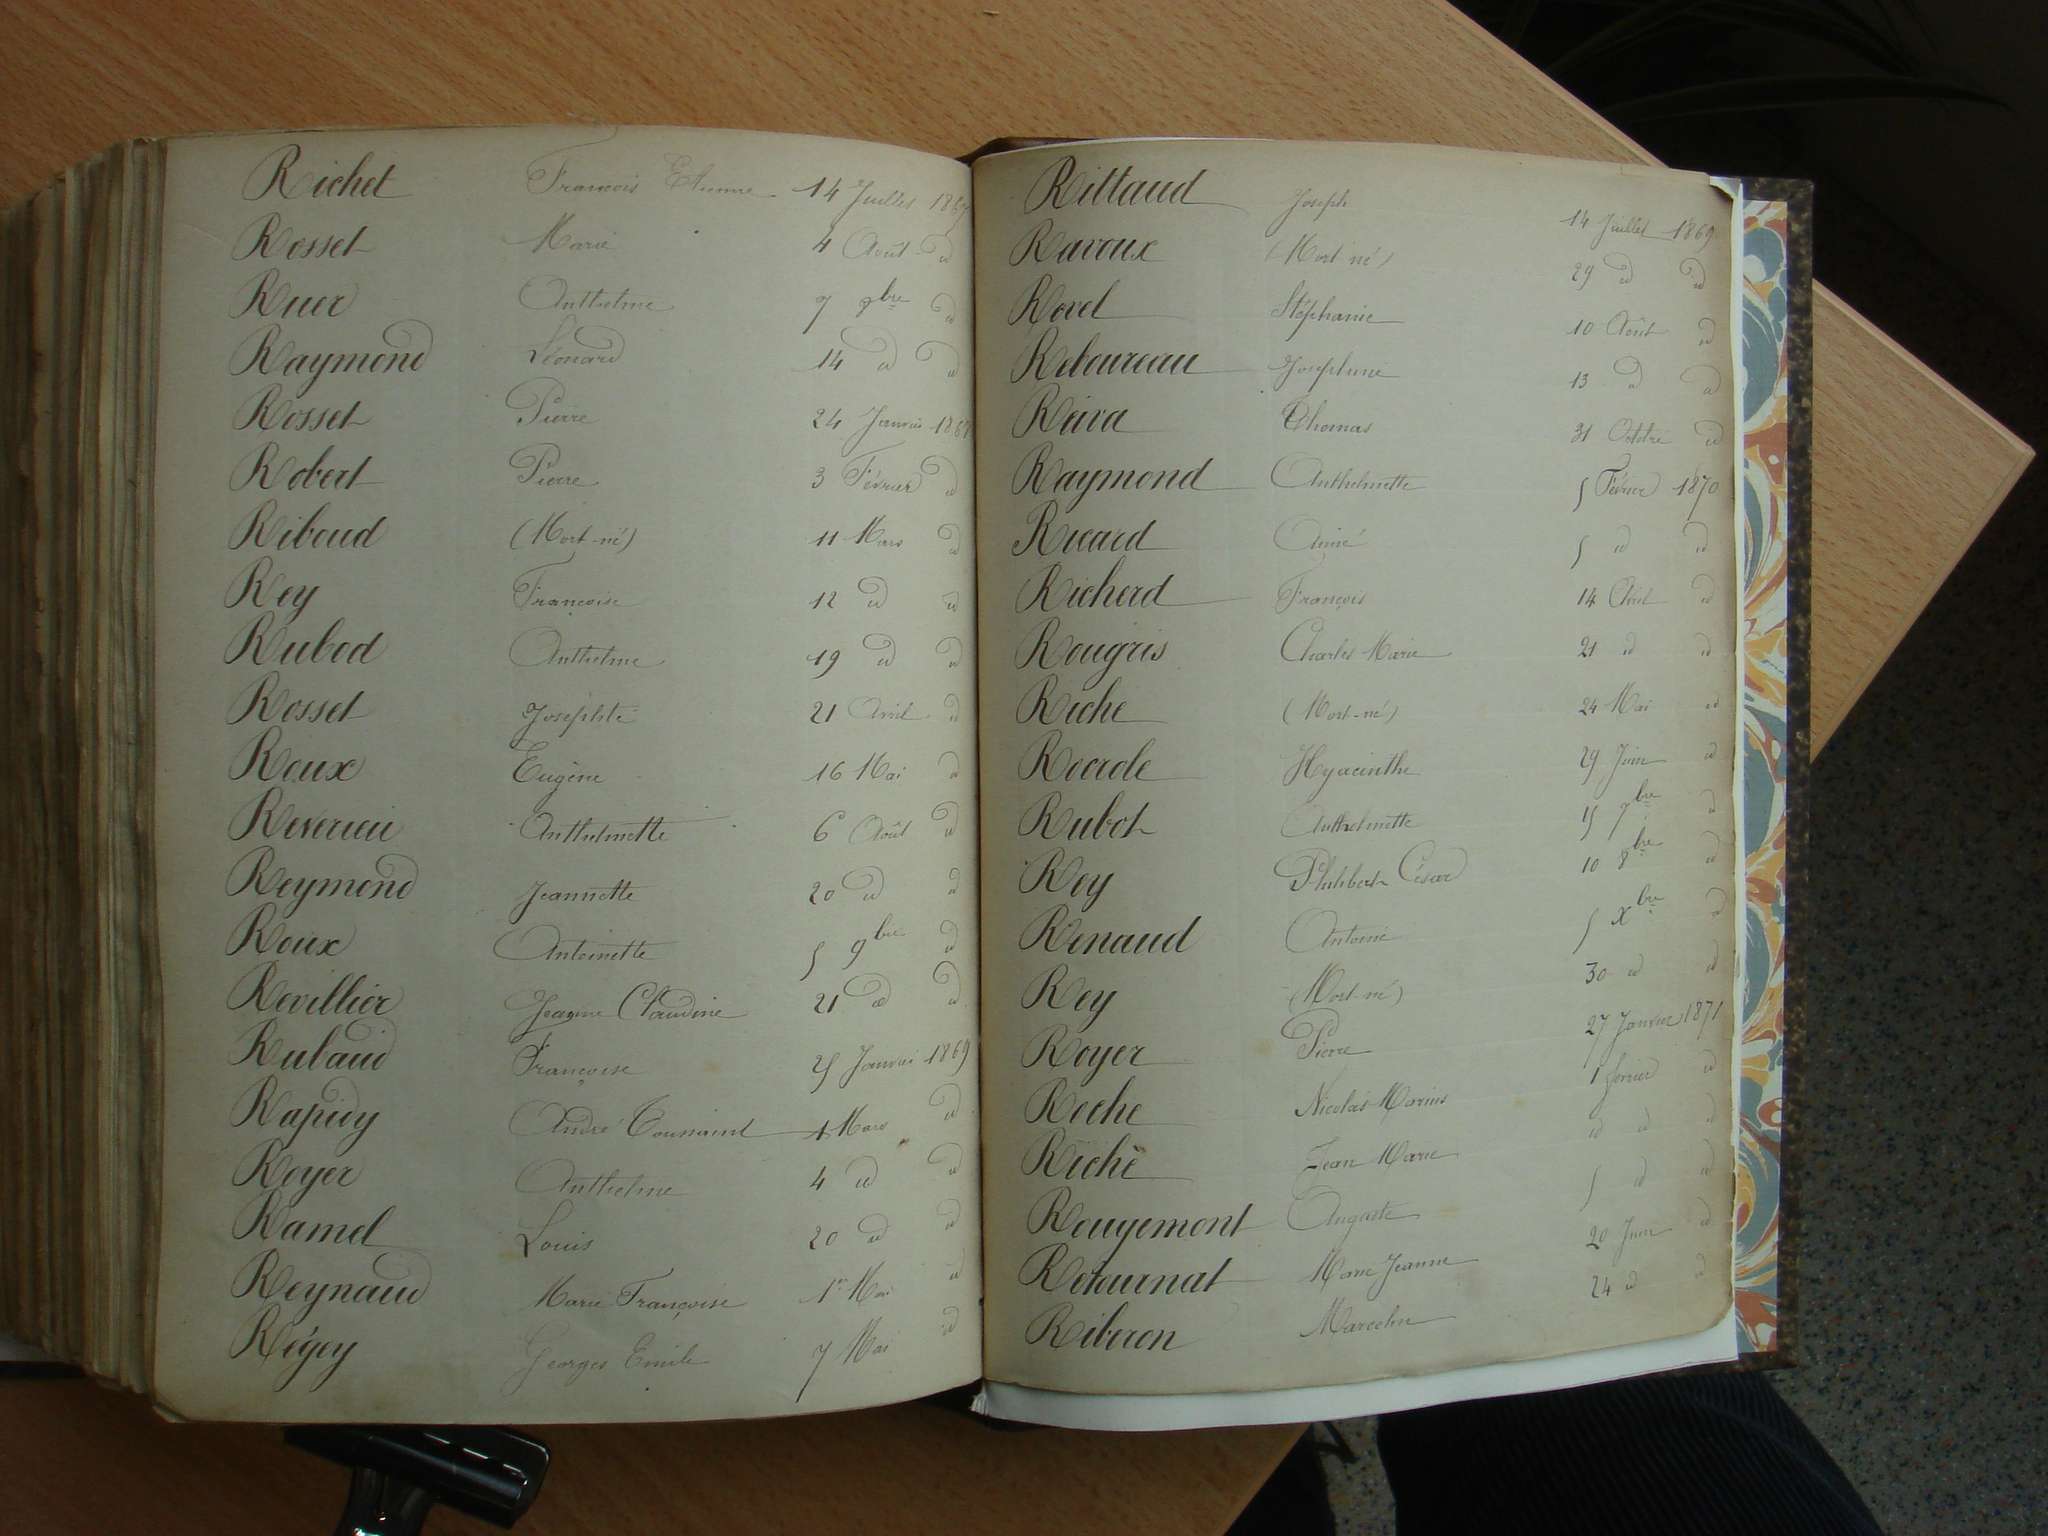 Richet François Etienne 14 Juillet 1867
Rosset Marie 4 Août id
Ruer Anthelme 7 9bre id
Raymond Léonard 14 id id
Rosset Pierre 24 Janvier 1868
Robert Pierre 3 Février id
Riboud (Mort-né) 11 Mars id
Rey Françoise 12 id id
Rubod Anthelme 19 id id
Rosset Josephte 21 Avril id
Roux Eugène 16 Mai id
Reverieu Anthelmette 6 Août id
Reymond Jeannette 20 id id
Roux Antoinette 5 9bre id
Revillier Jeanne Claudine 21 id id
Rubaud Françoise 25 Janvier 1869
Rapidy André Toussaint 1 Mars id
Royer Anthelme 4 id id
Ramel Louis 20 id id
Reynaud Marie Françoise 1er Mai id
Régey Georges Emile 7 Mai id
Rittaud Joseph 14 Juillet 1869
Ravoux (Mort-né) 29 id id
Rovel Stéphanie 10 Août id
Reboureau Joséphine 13 id id
Reiva Thomas 31 Octobre id
Raymond Anthelmette 5 Février 1870
Ricard Aimé 5 id id
Richerd François 14 id
Rougris Charles Marie 21 id id
Riche (Mort-né) 24 Mai id
Rocrole Hyacinthe 29 Juin id
Rubot Anthelmette 15 7bre id
Rey Philibert César 10 8bre id
Renaud Antoine 5 Xbre id
Rey (Mort-né) 30 id id
Royer Pierre 27 Janvier 1871
Roche Nicolas Marius 1 février id
Riche Jean Marie id id id
Rougemont Auguste 5 id id
Retournat Marie Jeanne 20 Juin id
Riberon Marcelin 24 id id